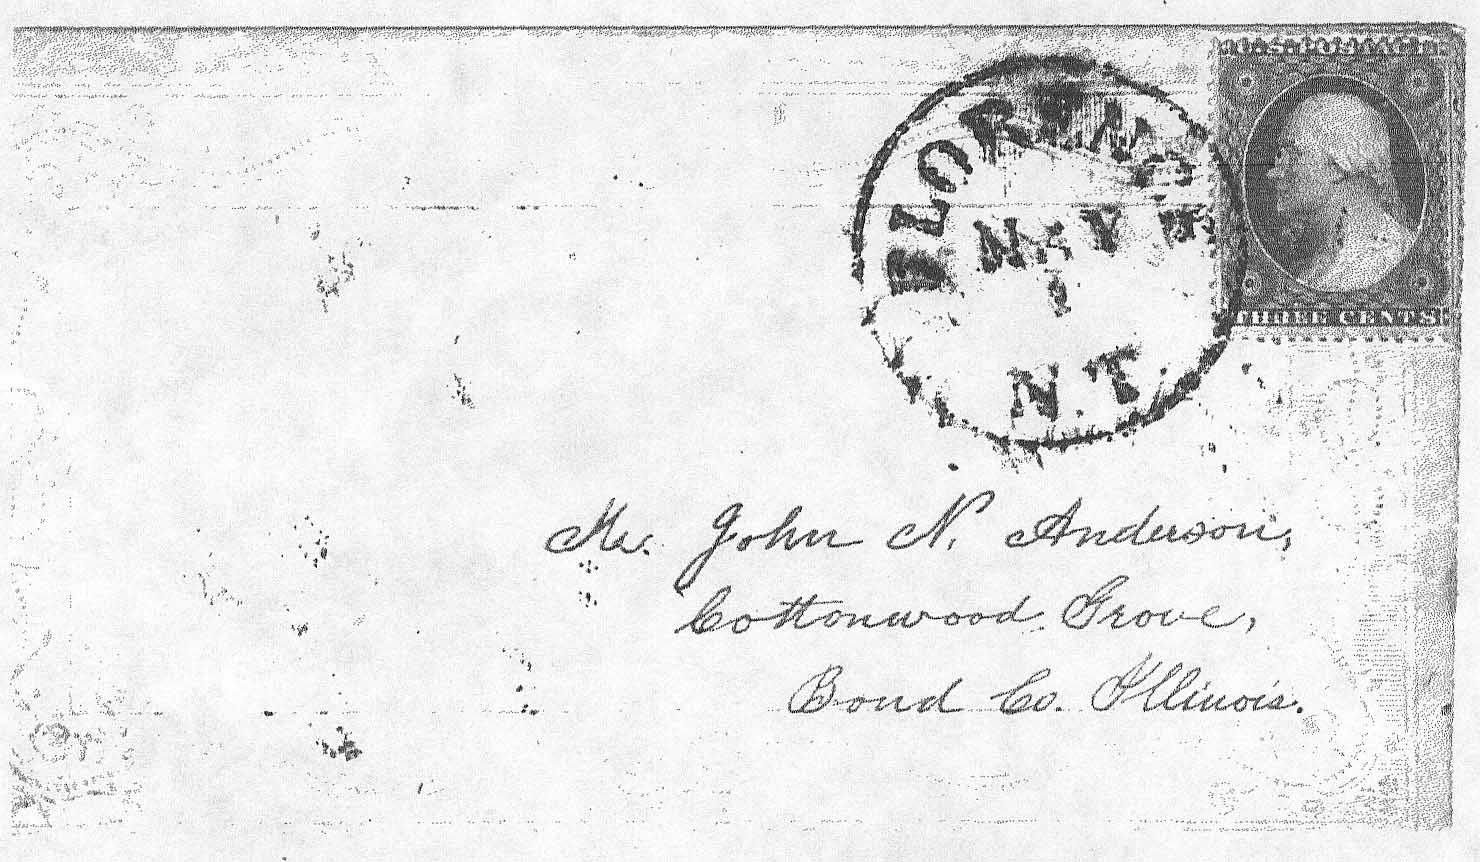 U.S. POSTAGE
FLORENCE
MAY
1
N.T.
THREE CENTS
Mr. John N. Anderson,
Cottonwood Grove,
Bond Co. Illinois.